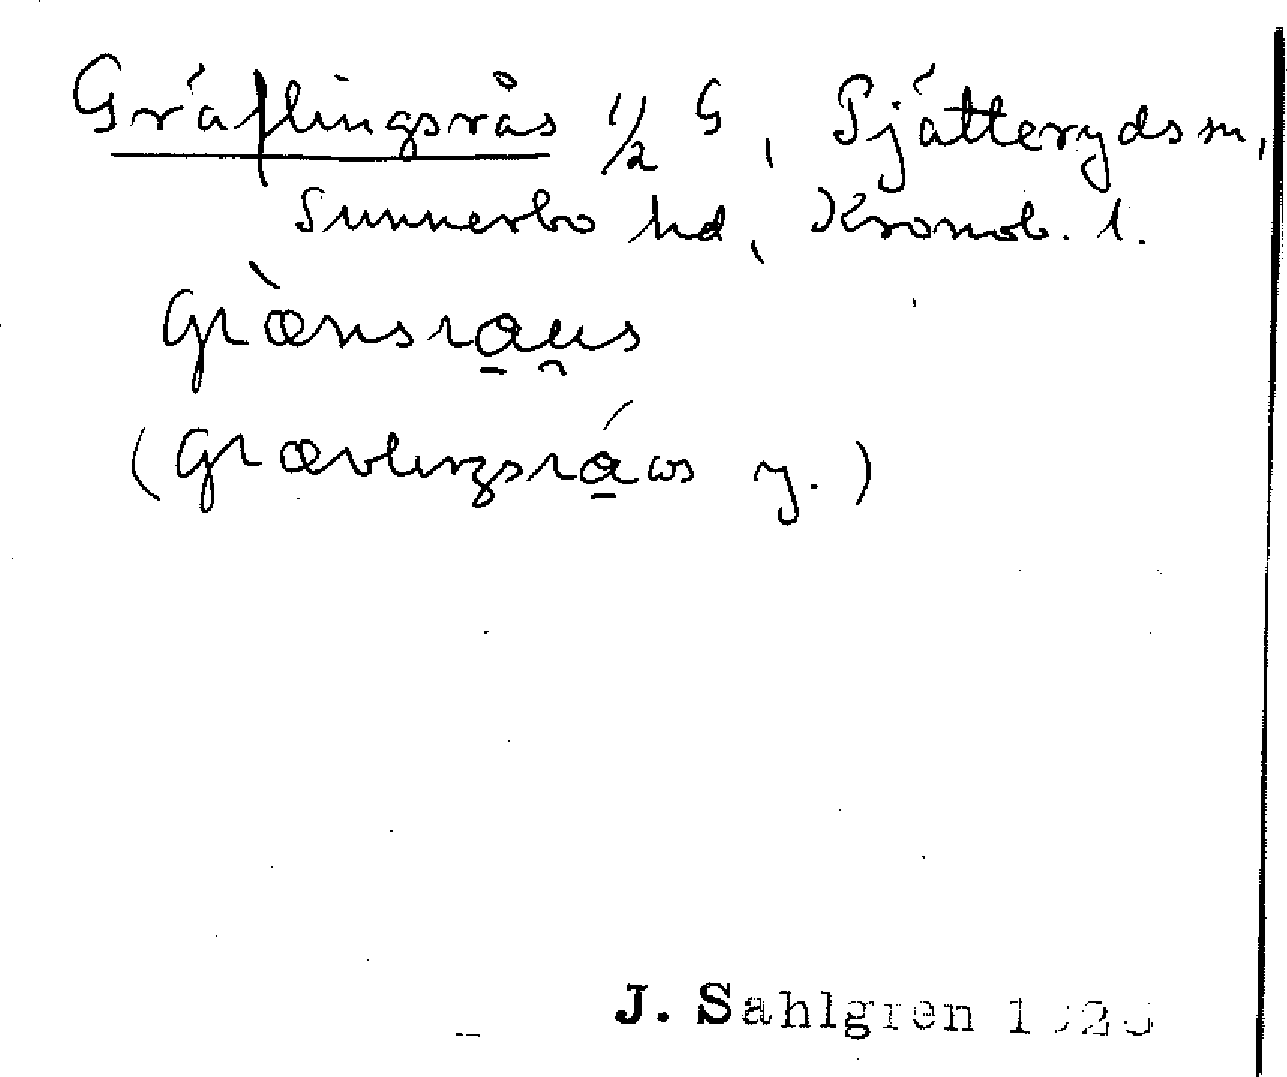 Gräflingsrås 1/2 G, Pjätterydssn,
Sunnerbo hd, Kronob. l.
græ̀nsrau̯s
(grævlingsráωs y.)
J. Sahlgren